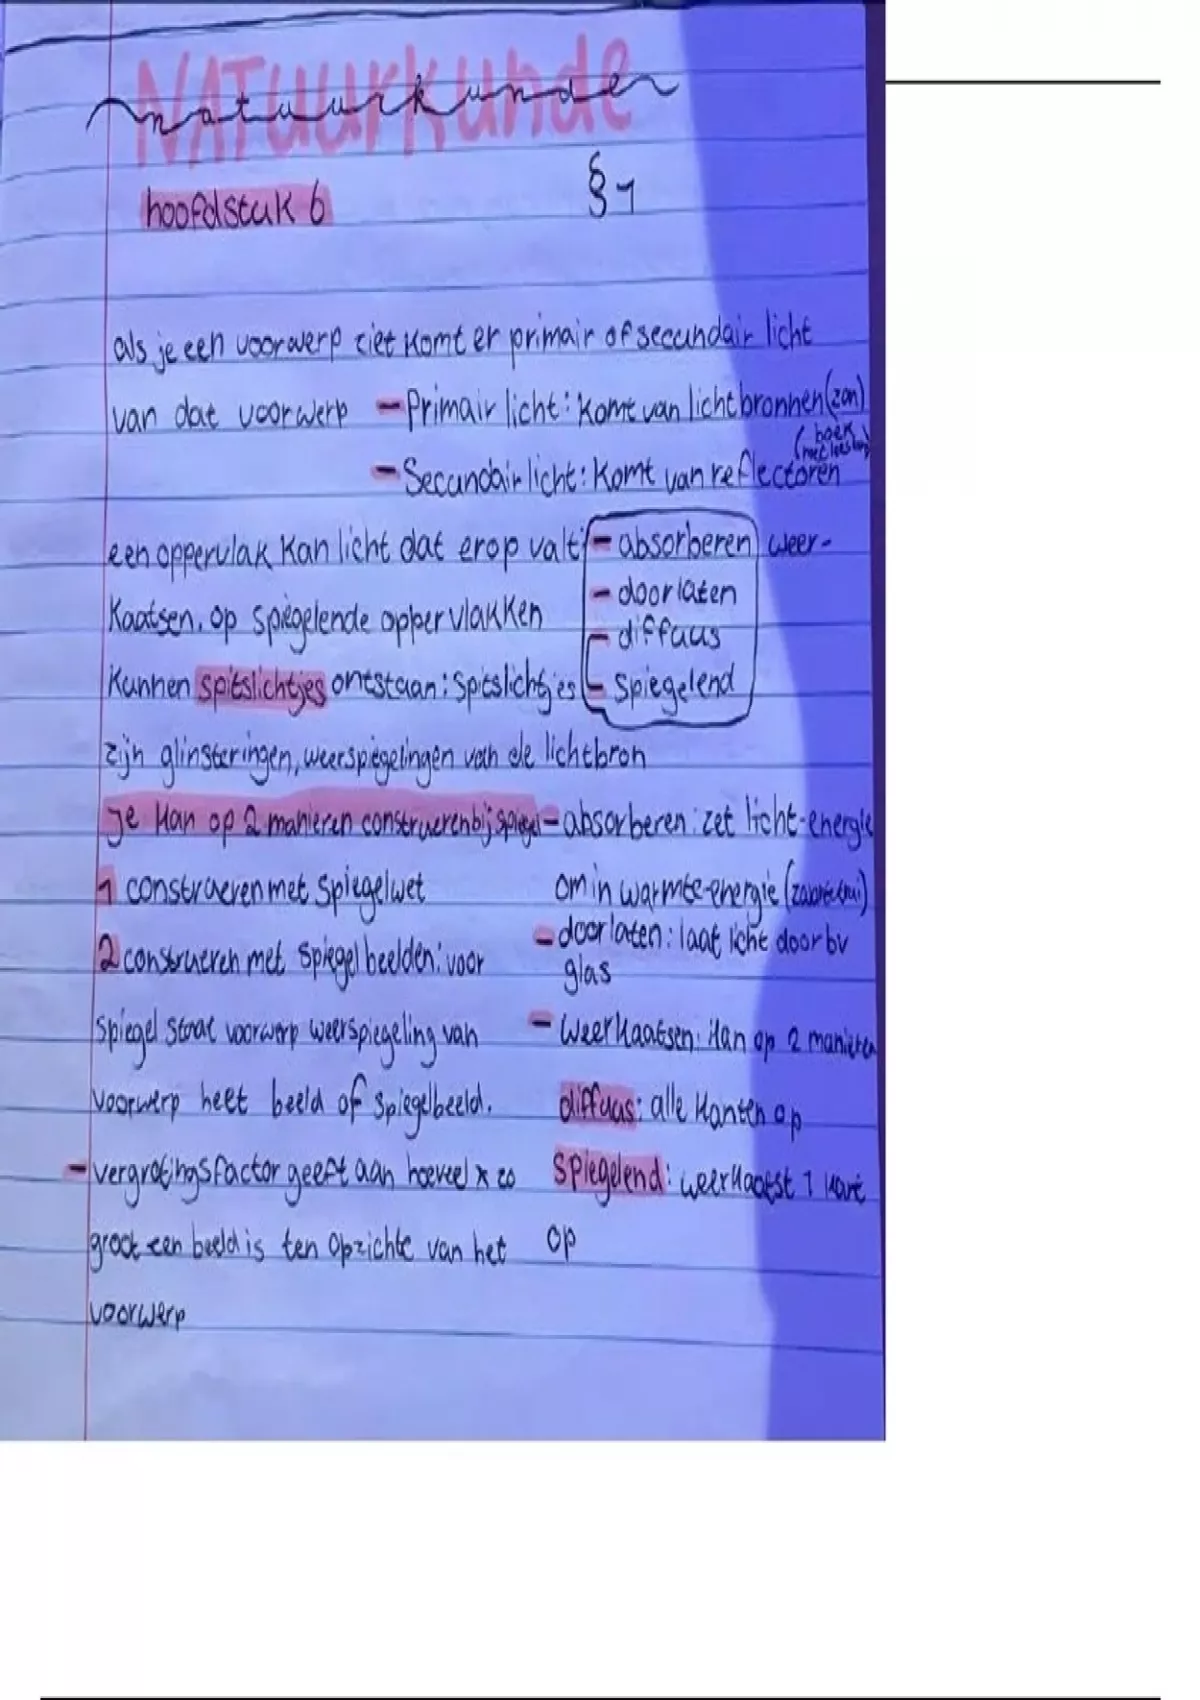 NATUURKUNDE
natuurkunde
hoofdstuk 6
§1
als je een voorwerp ziet komt er primair of secundair licht
van dat voorwerp - Primair licht: Komt van lichtbronnen (zon)
(boek
- Secundair licht: Komt van reflectoren
een oppervlak kan licht dat erop valt
- absorberen weer-
- doorlaten
- diffuus
- spiegelend
Kaatsen. op spiegelende oppervlakken
Kunnen spitslichtjes ontstaan: Spitslichtjes
zijn glinsteringen, weerspiegelingen van de lichtbron
je kan op 2 manieren construeren bij spiegel
1 construeren met spiegelwet
2 construeren met spiegelbeelden: voor
spiegel staat voorwerp weerspiegeling van
voorwerp heet beeld of spiegelbeeld.
- vergrotingsfactor geeft aan hoeveel x zo
groot een beeld is ten opzichte van het
voorwerp
- absorberen: zet licht-energie
om in warmte-energie
- doorlaten: laat licht door bv
glas
- weerkaatsen: kan op 2 manieren
diffuus: alle kanten op
spiegelend: weerkaatst 1 kant
op